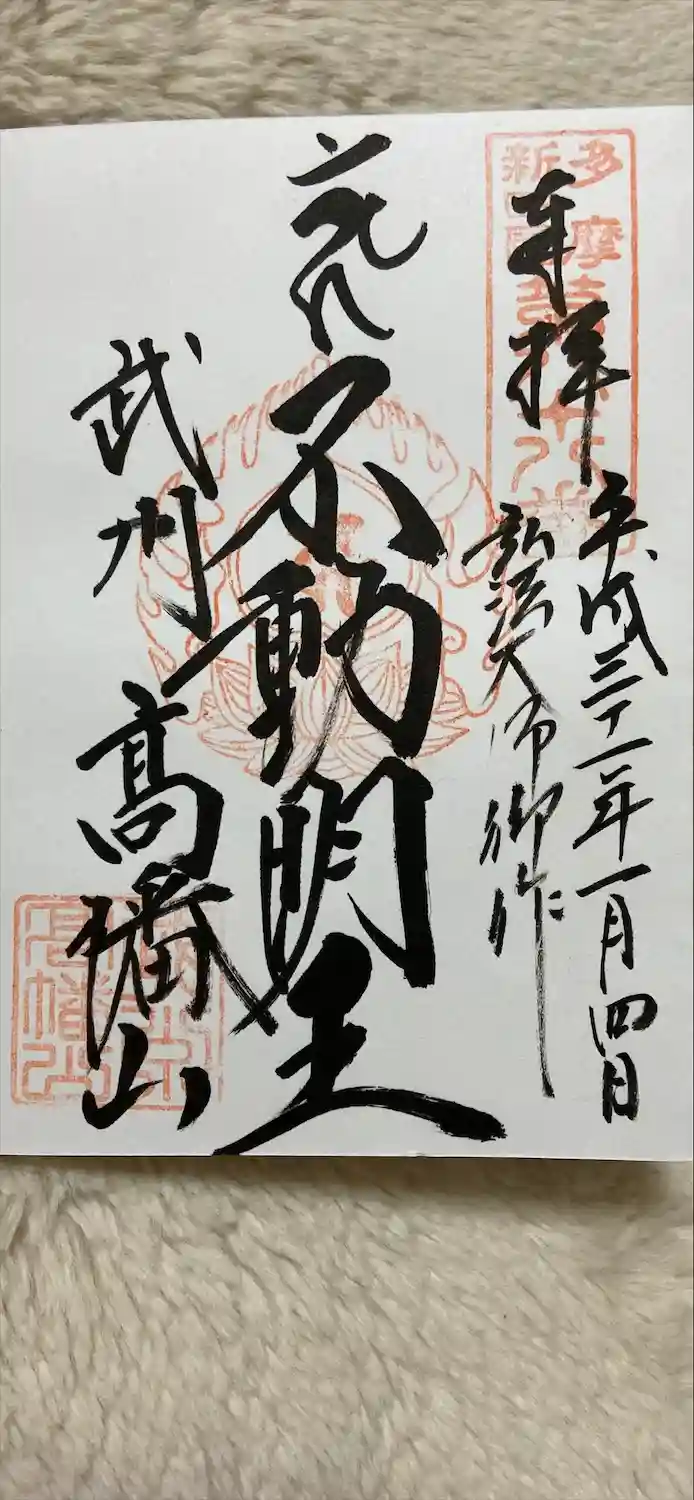 多摩
新四国
奉拝
平成三十一年一月四日
弘法大師御作
不動明王
武州
高幡山